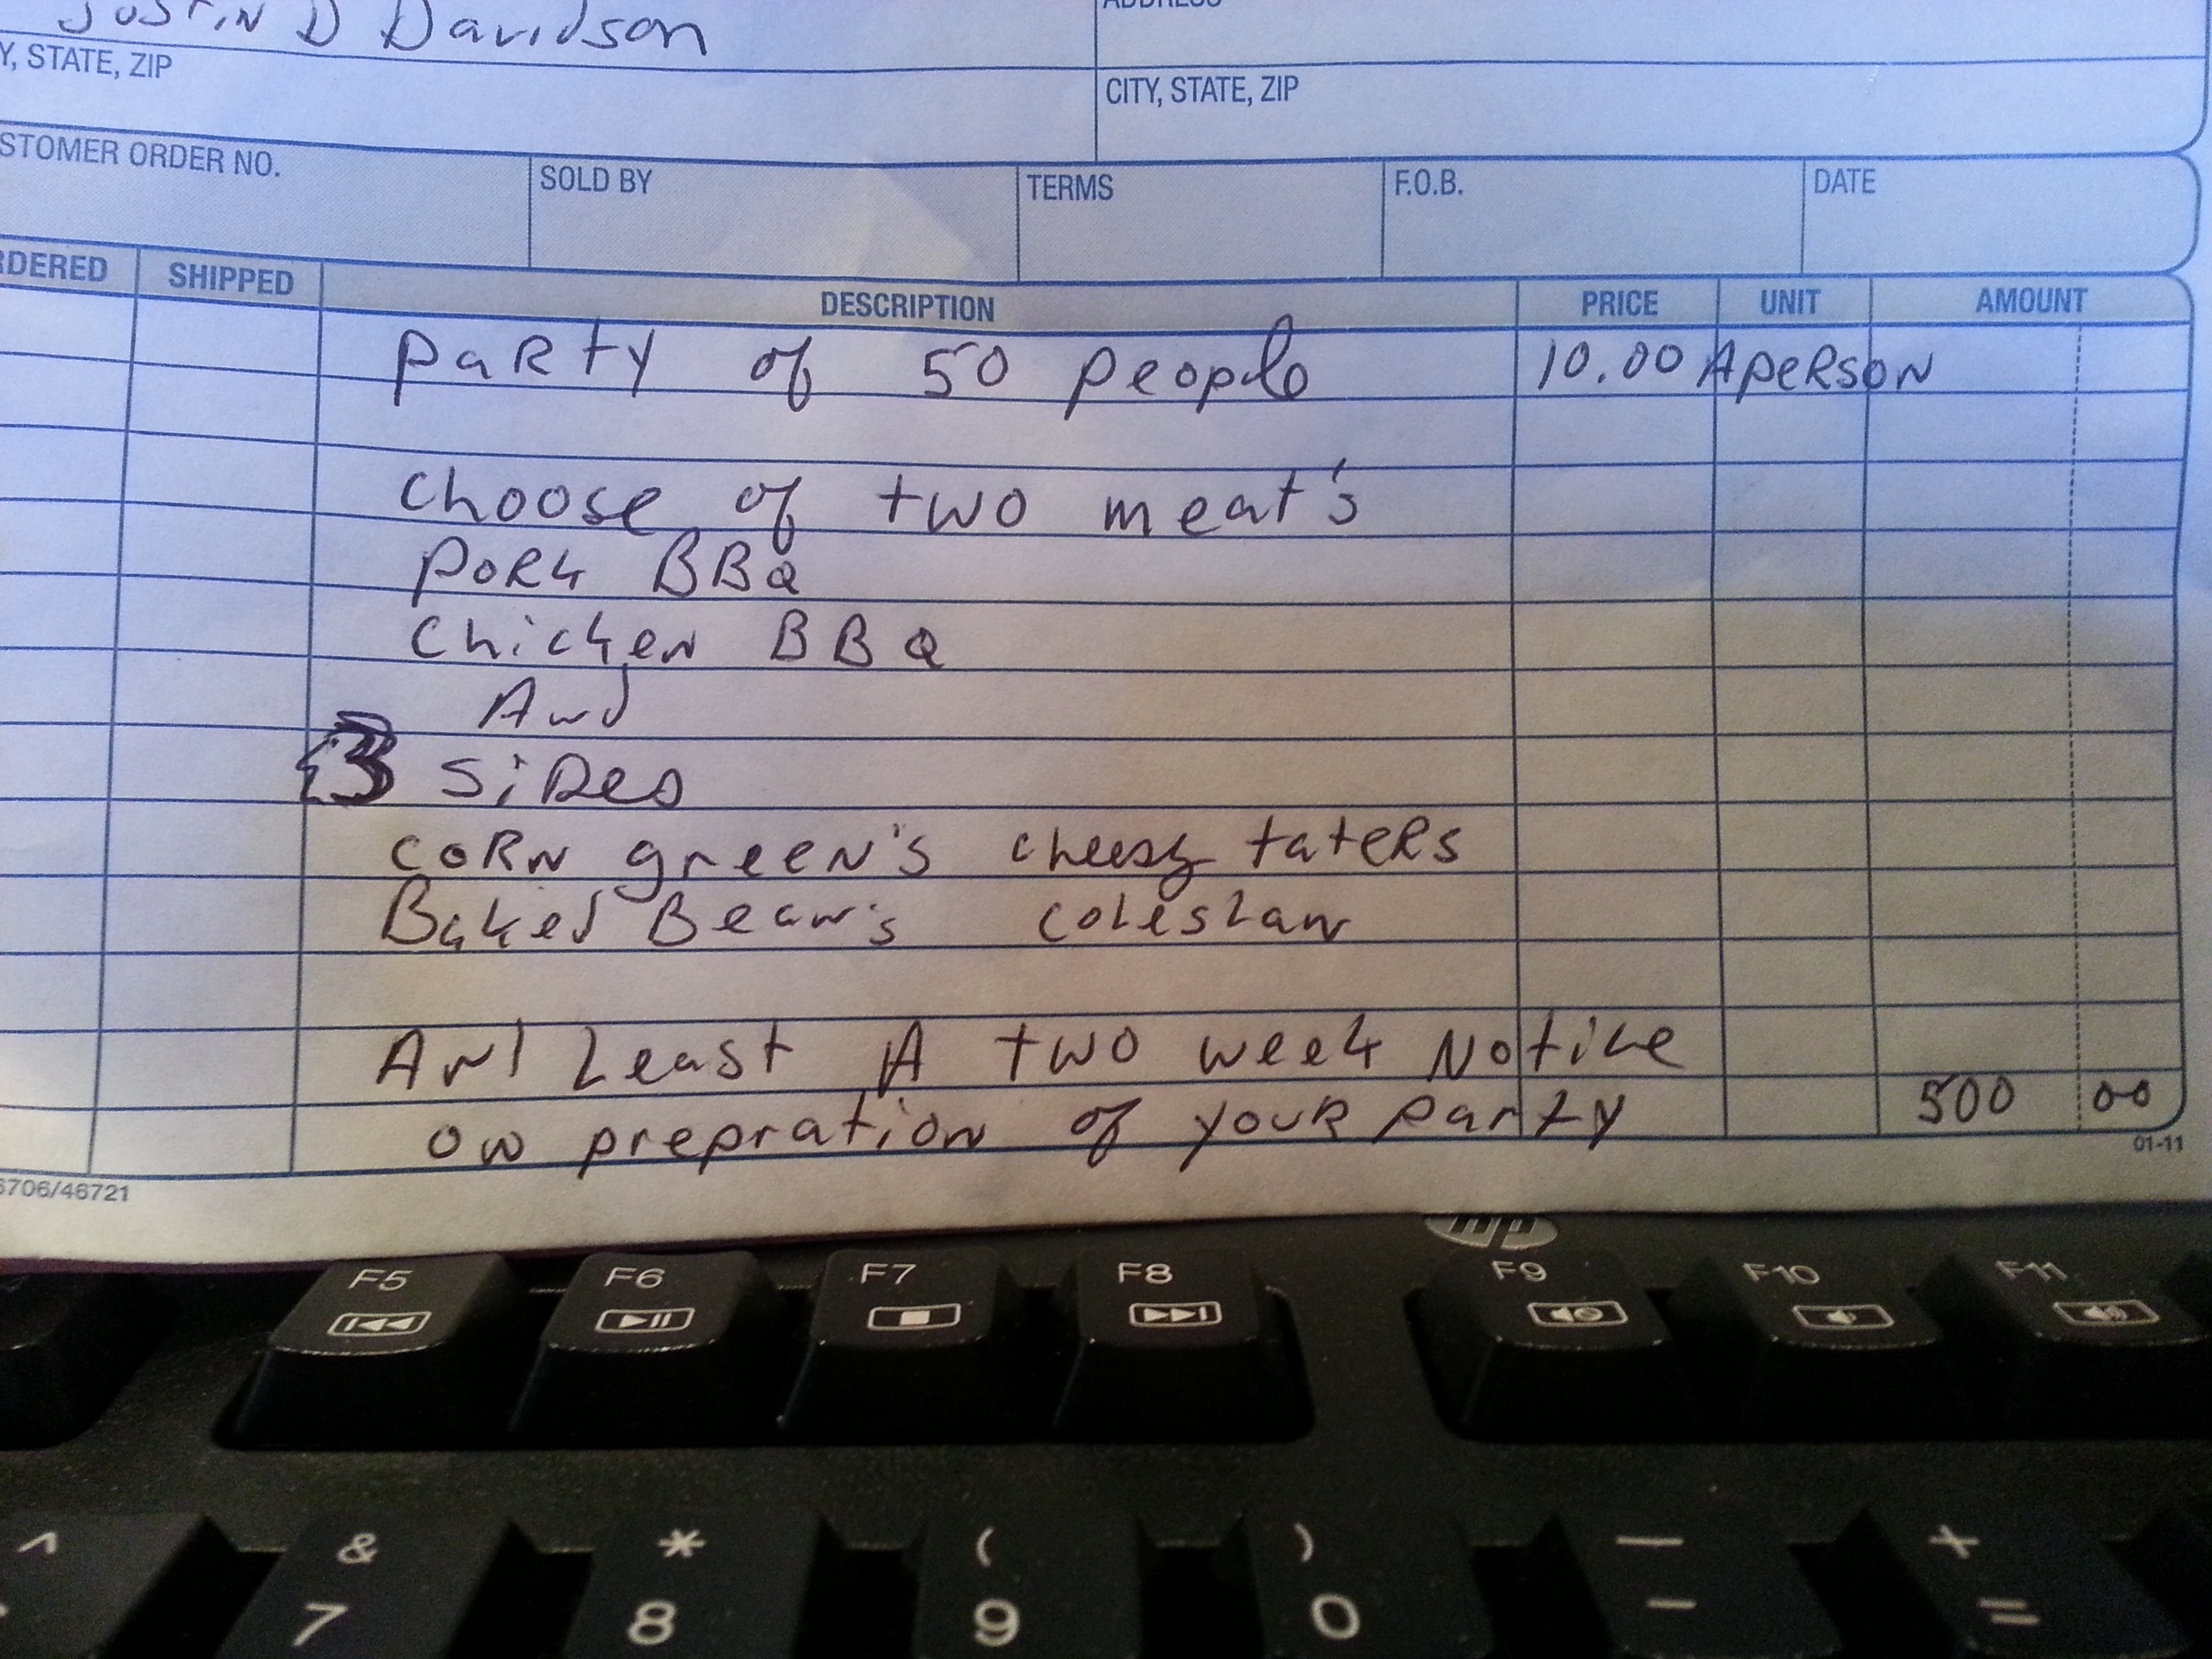 Justin D Davidson
ADDRESS
Y, STATE, ZIP
CITY, STATE, ZIP
STOMER ORDER NO. SOLD BY TERMS F.O.B. DATE
RDERED SHIPPED DESCRIPTION PRICE UNIT AMOUNT
Party of 50 people 10.00 A person
Choose of two meat's
Pork BBQ
Chicken BBQ
And
3 Sides
Corn green's cheesy taters
Baked Bean's coleslaw
Least A two week Notice
on prepration of your party 500 00
01-11
6706/46721
hp
F5 F6 F7 F8 F9 F10 F11
^ & * ( ) — +
7 8 9 0 - =